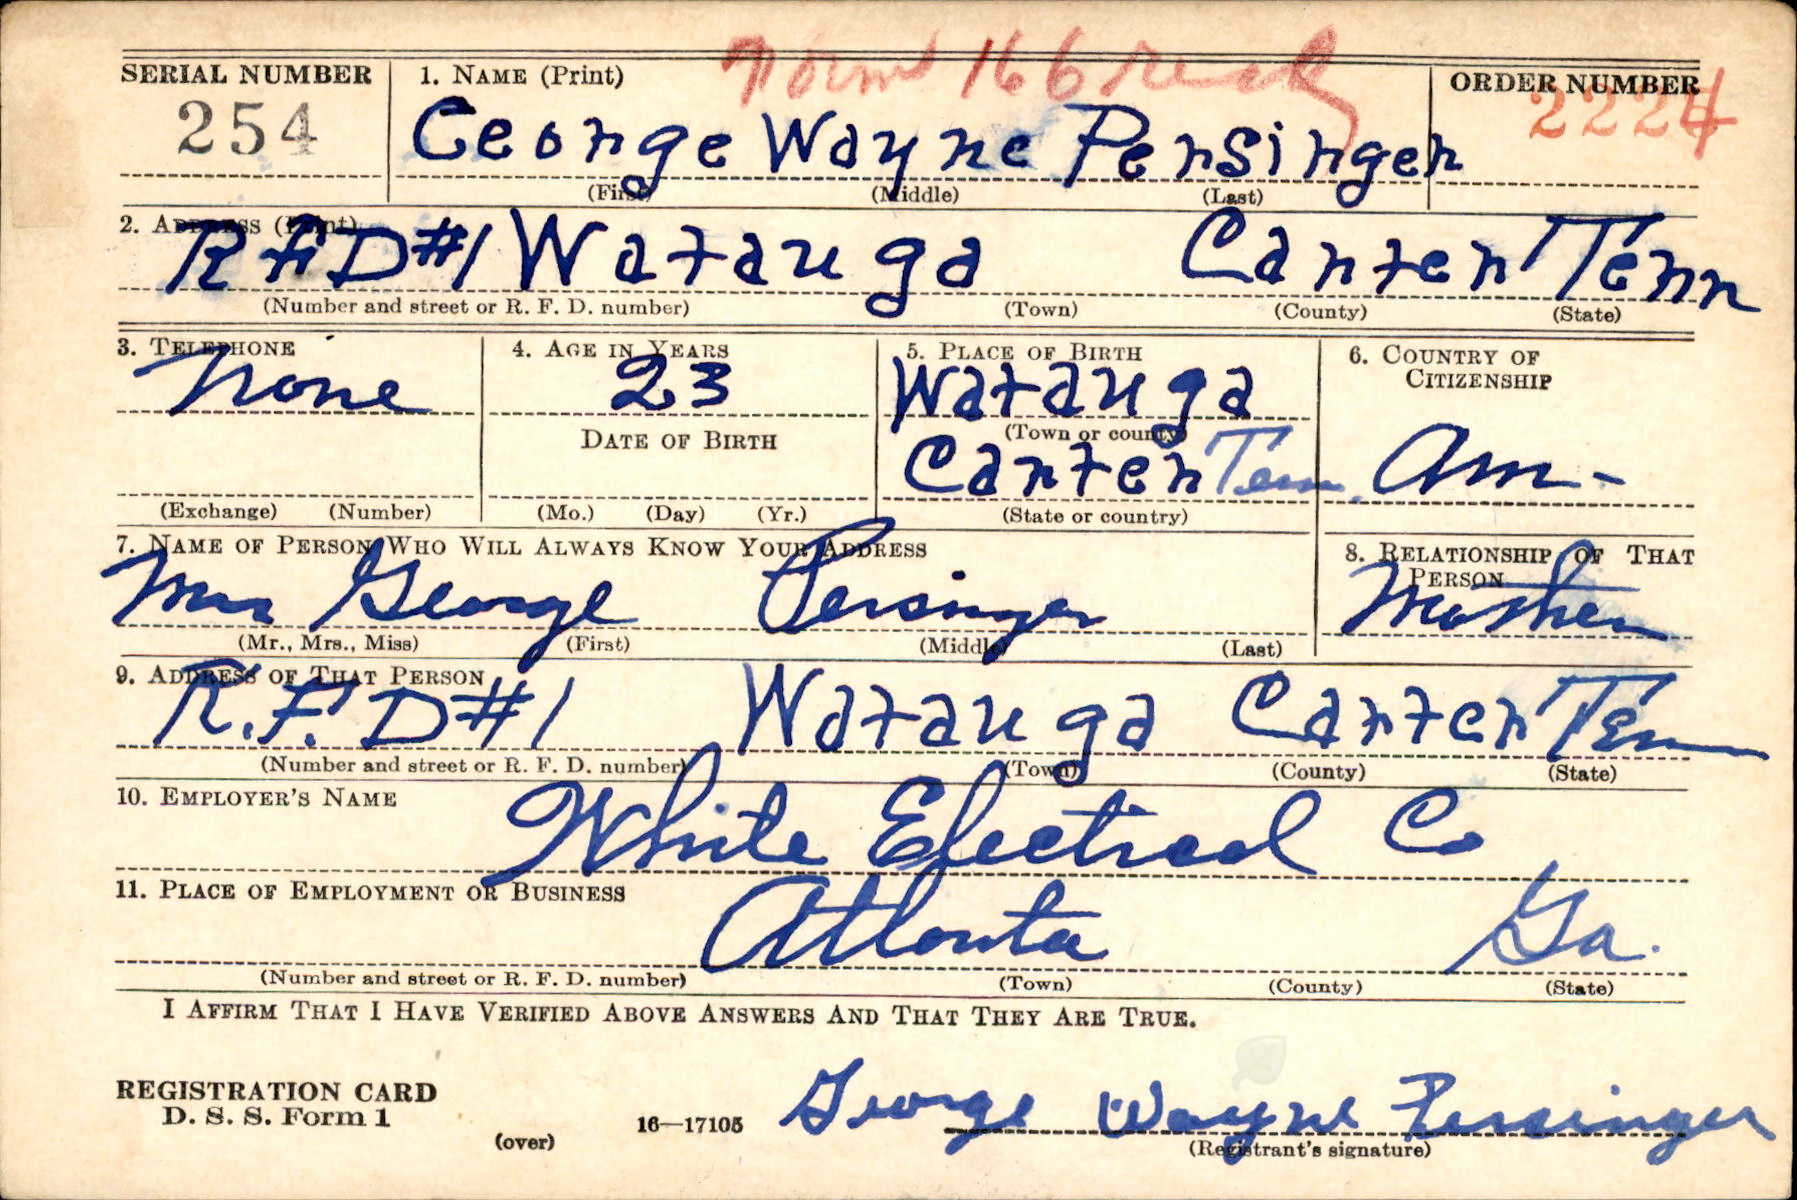 Form 166 recd
SERIAL NUMBER 1. NAME (Print) ORDER NUMBER
254 George Wayne Persinger 2224
(First) (Middle) (Last)
2. ADDRESS (Print)
R.F.D #1 Watauga Carter Tenn
(Number and street or R. F. D. number) (Town) (County) (State)
3. TELEPHONE 4. AGE IN YEARS 5. PLACE OF BIRTH 6. COUNTRY OF
CITIZENSHIP
None 23 Watauga
(Town or county)
DATE OF BIRTH
Carter Tenn. Am-
(Exchange) (Number) (Mo.) (Day) (Yr.) (State or country)
7. NAME OF PERSON WHO WILL ALWAYS KNOW YOUR ADDRESS 8. RELATIONSHIP OF THAT
PERSON
Mrs George Persinger Mother
(Mr., Mrs., Miss) (First) (Middle) (Last)
9. ADDRESS OF THAT PERSON
R.F.D #1 Watauga Carter Tenn
(Number and street or R. F. D. number) (Town) (County) (State)
10. EMPLOYER'S NAME
White Electrical Co
11. PLACE OF EMPLOYMENT OR BUSINESS
Atlanta Ga.
(Number and street or R. F. D. number) (Town) (County) (State)
I AFFIRM THAT I HAVE VERIFIED ABOVE ANSWERS AND THAT THEY ARE TRUE.
REGISTRATION CARD
D. S. S. Form 1
(over) 16—17105 George Wayne Persinger
(Registrant's signature)